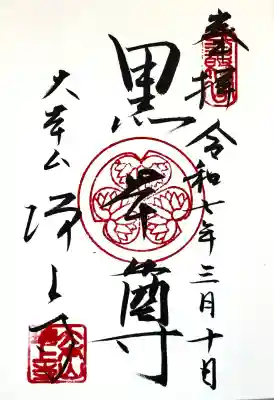 奉拝 令和七年三月十日
黒本尊
大本山 増上寺